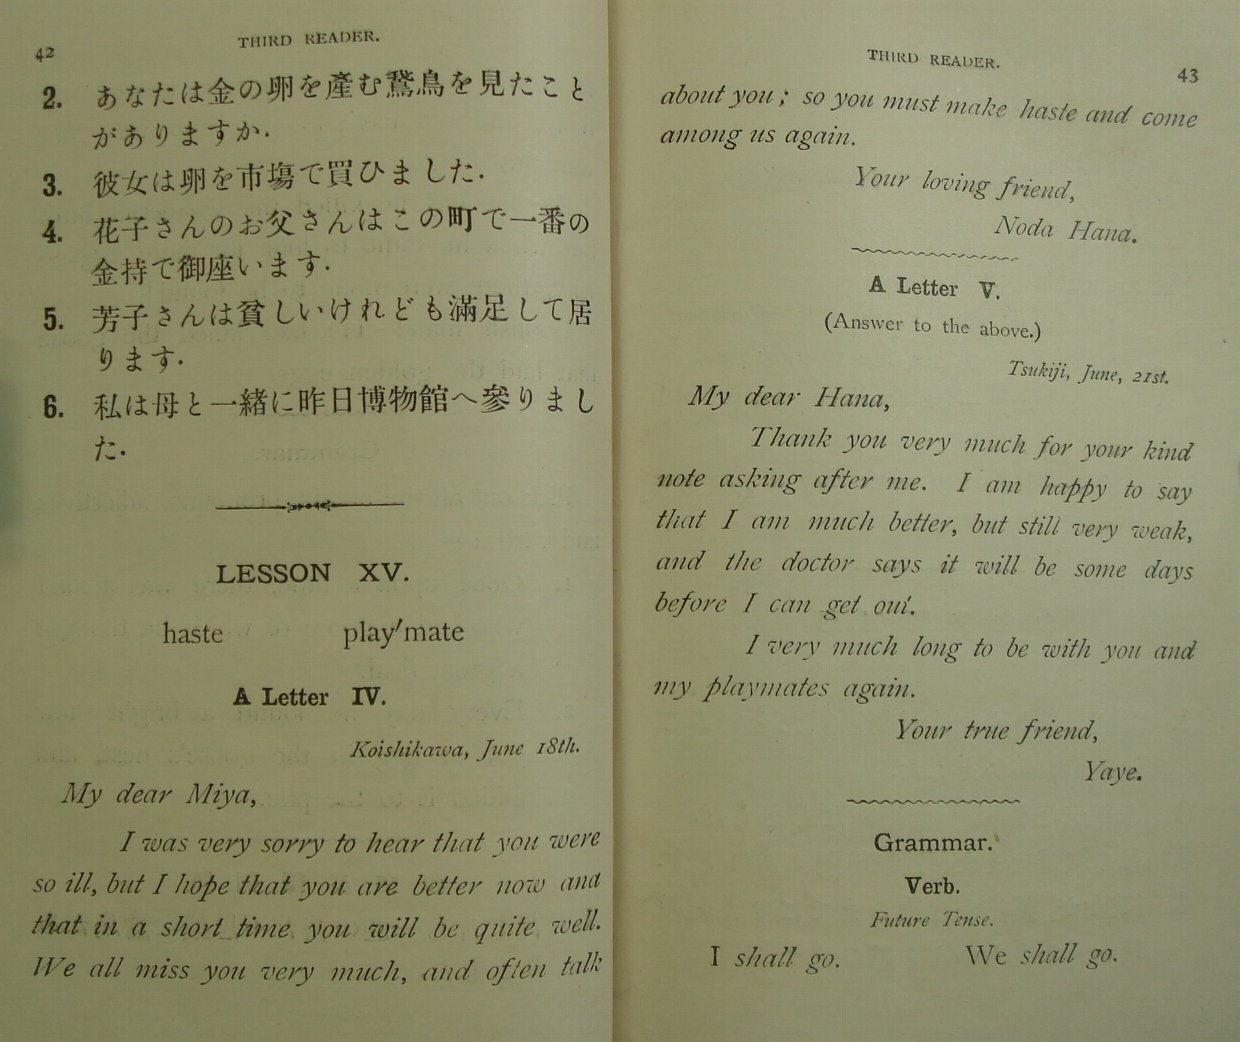 42
THIRD READER.
2. あなたは金の卵を產む鵞鳥を見たこと
がありますか.
3. 彼女は卵を市塲で買ひました.
4. 花子さんのお父さんはこの町で一番の
金持で御座います.
5. 芳子さんは貧しいけれども滿足して居
ります.
6. 私は母と一緒に昨日博物館へ參りまし
た.
LESSON XV.
haste play′mate
A Letter IV.
Koishikawa, June 18th.
My dear Miya,
I was very sorry to hear that you were
so ill, but I hope that you are better now and
that in a short time you will be quite well.
We all miss you very much, and often talk
THIRD READER.
43
about you; so you must make haste and come
among us again.
Your loving friend,
Noda Hana.
A Letter V.
(Answer to the above.)
Tsukiji, June, 21st.
My dear Hana,
Thank you very much for your kind
note asking after me. I am happy to say
that I am much better, but still very weak,
and the doctor says it will be some days
before I can get out.
I very much long to be with you and
my playmates again.
Your true friend,
Yaye.
Grammar.
Verb.
Future Tense.
I shall go. We shall go.